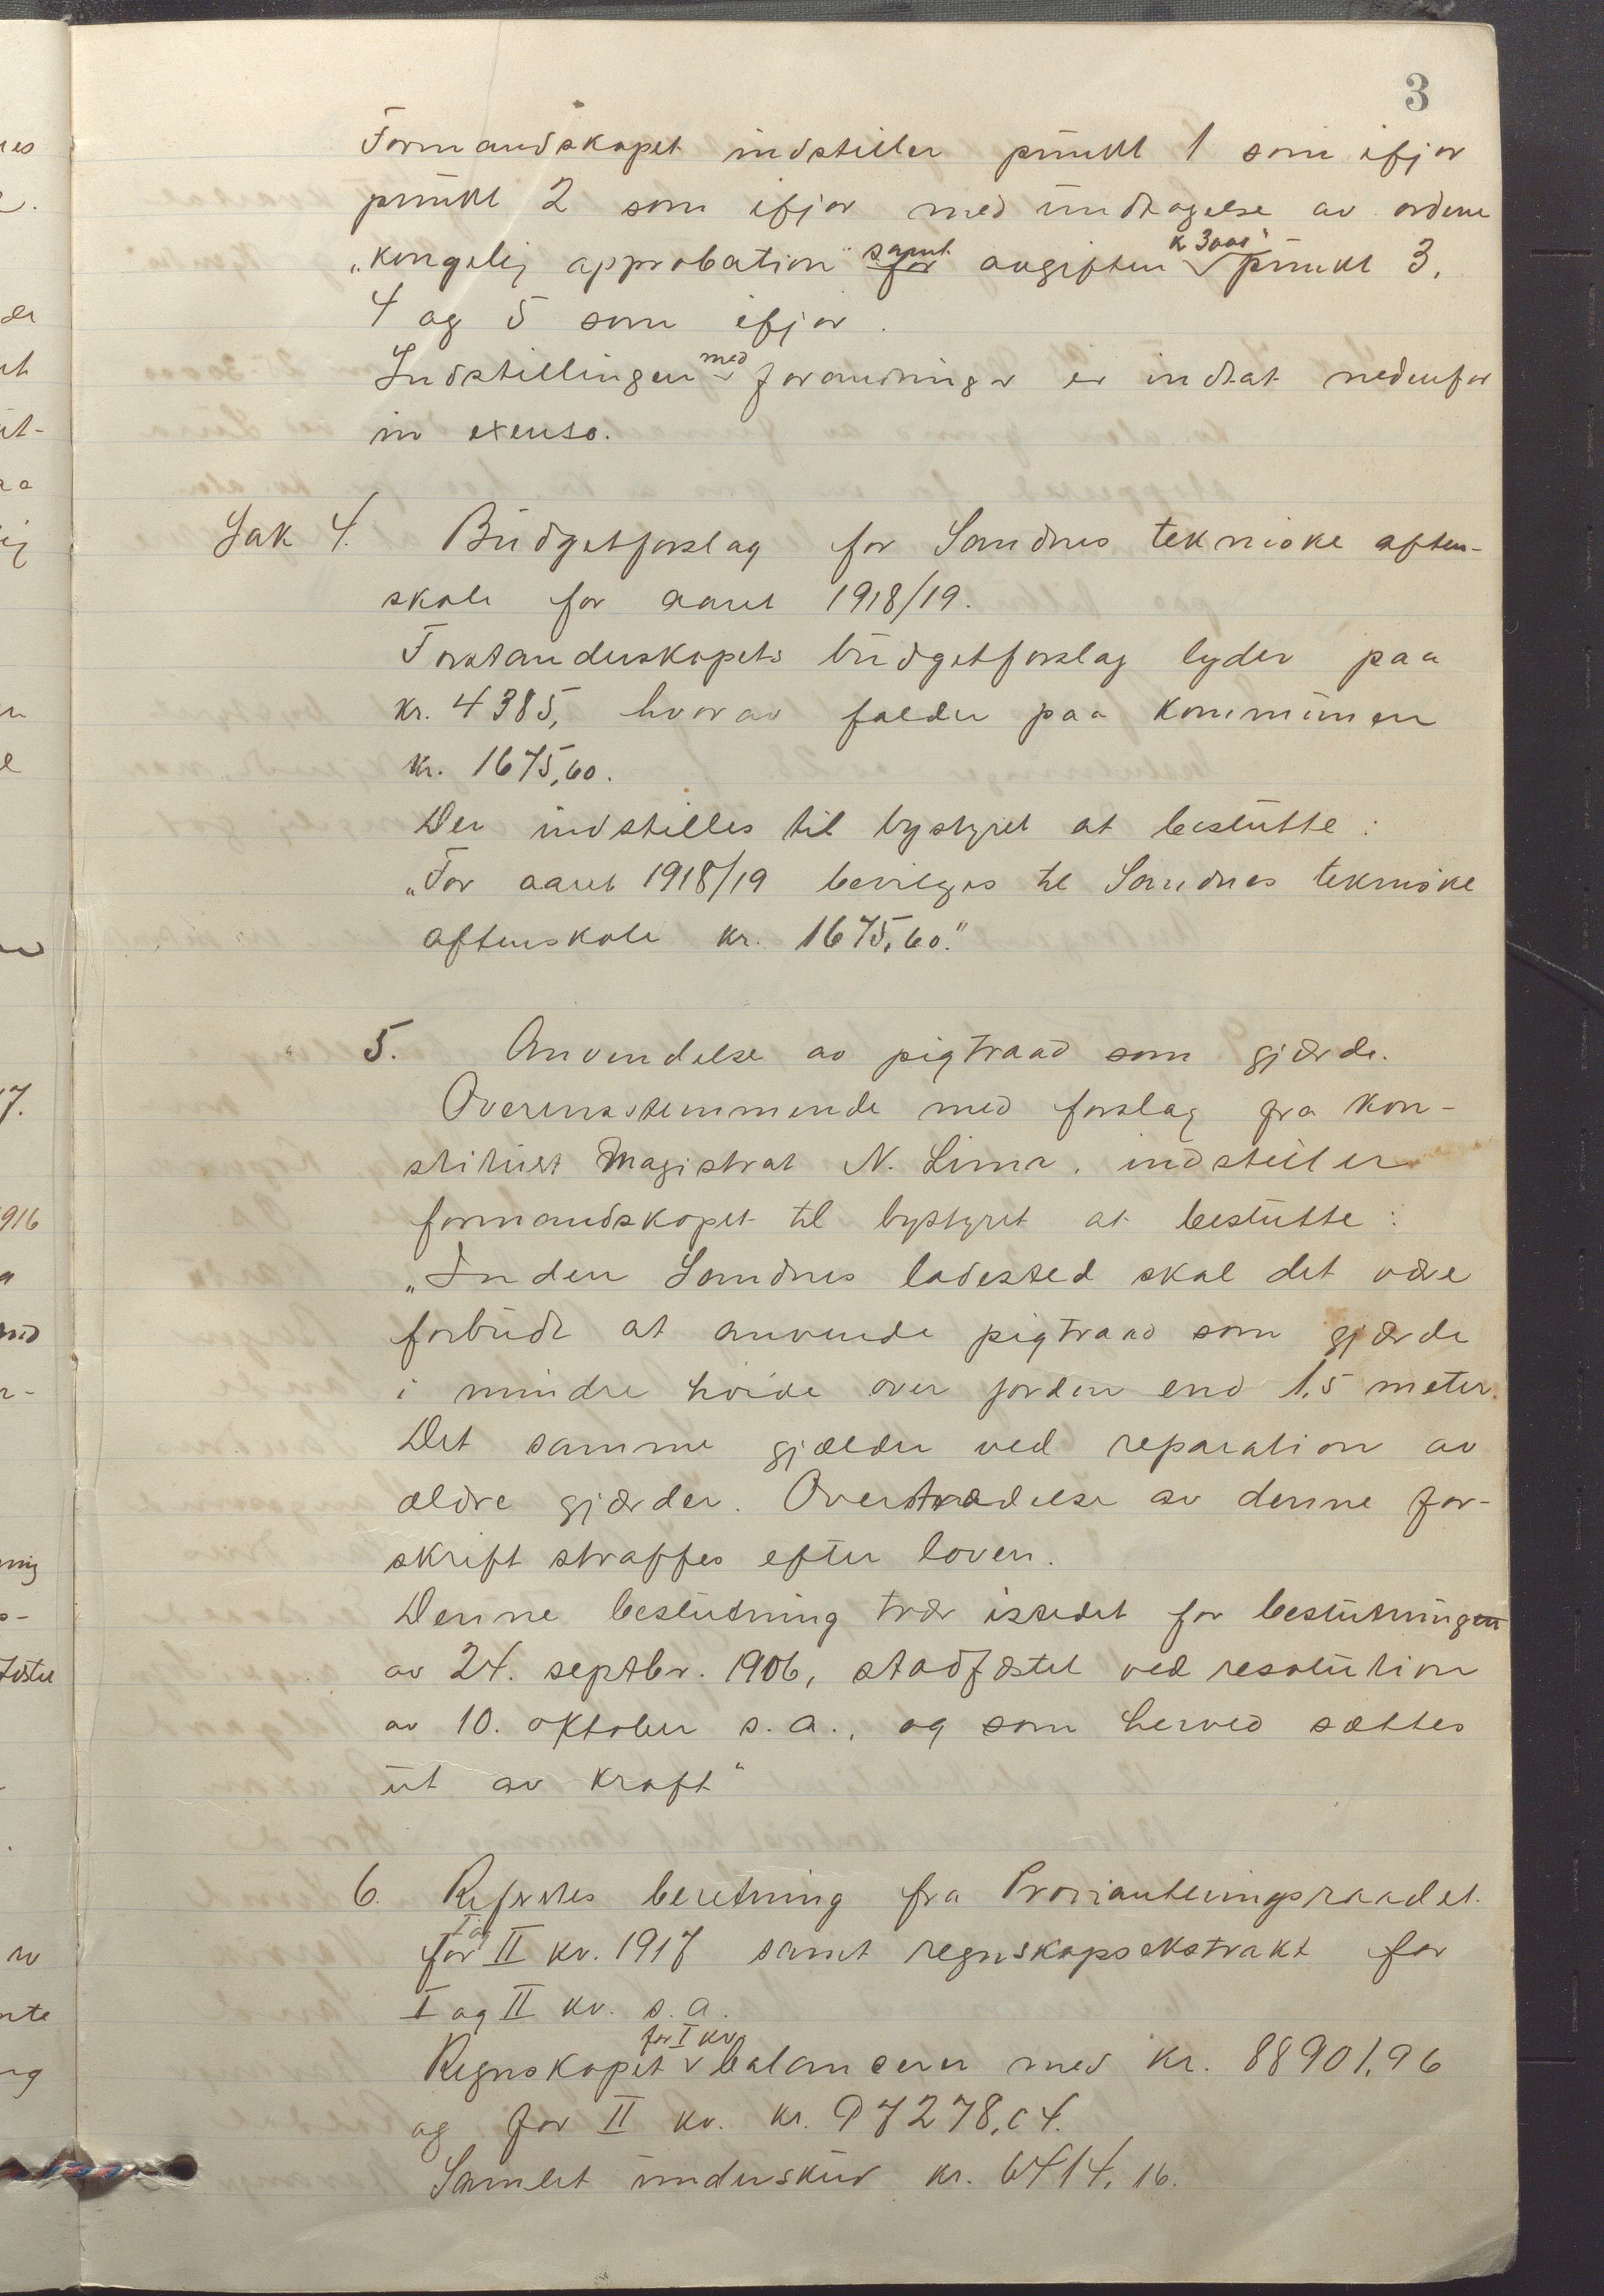 3
Formandskapet indstiller punkt 1 som ifjor
punkt 2 som ifjor med undtagelse av ordene
„kongelig approbation" samt avgiften kr 3000" punkt 3,
4 og 5 som ifjor.
Indstillingen med forandringer er indtat nedenfor
in extenso.
Sak 4. Budgetforslag for Sandnes tekniske aften-
skole for aaret 1918/19.
Forstanderskapets budgetforslag lyder paa
kr. 4385, hvorav falder paa kommunen
kr. 1675,60.
Der indstilles til bystyret at beslutte:
„For aaret 1918/19 bevilges til Sandnes tekniske
aftenskole kr. 1675,60."
5. Anvendelse av pigtraad som gjærde.
Overensstemmende med forslag fra kon-
stituert Magistrat N. Lima, indstiller
formandskapet til bystyret at beslutte:
„Inden Sandnes ladested skal det være
forbudt at anvende pigtraad som gjærde
i mindre høide over jorden end 1,5 meter.
Det samme gjælder ved reparation av
ældre gjærder. Overtrædelse av denne for-
skrift straffes efter loven.
Denne beslutning trær istedet for beslutningen
av 24. septbr. 1906, stadfæstet ved resolution
av 10. oktober s.a., og som herved sættes
ut av kraft"
6. Refertes beretning fra Provianteringsraadet
for I og II kv. 1917 samt regnskapsekstrakt for
I og II kv. s.a.
Regnskapet for I kv. balancerer med kr. 88901,96
og for II kv. kr. 97278,04.
Samlet underskud kr. 6414,16.